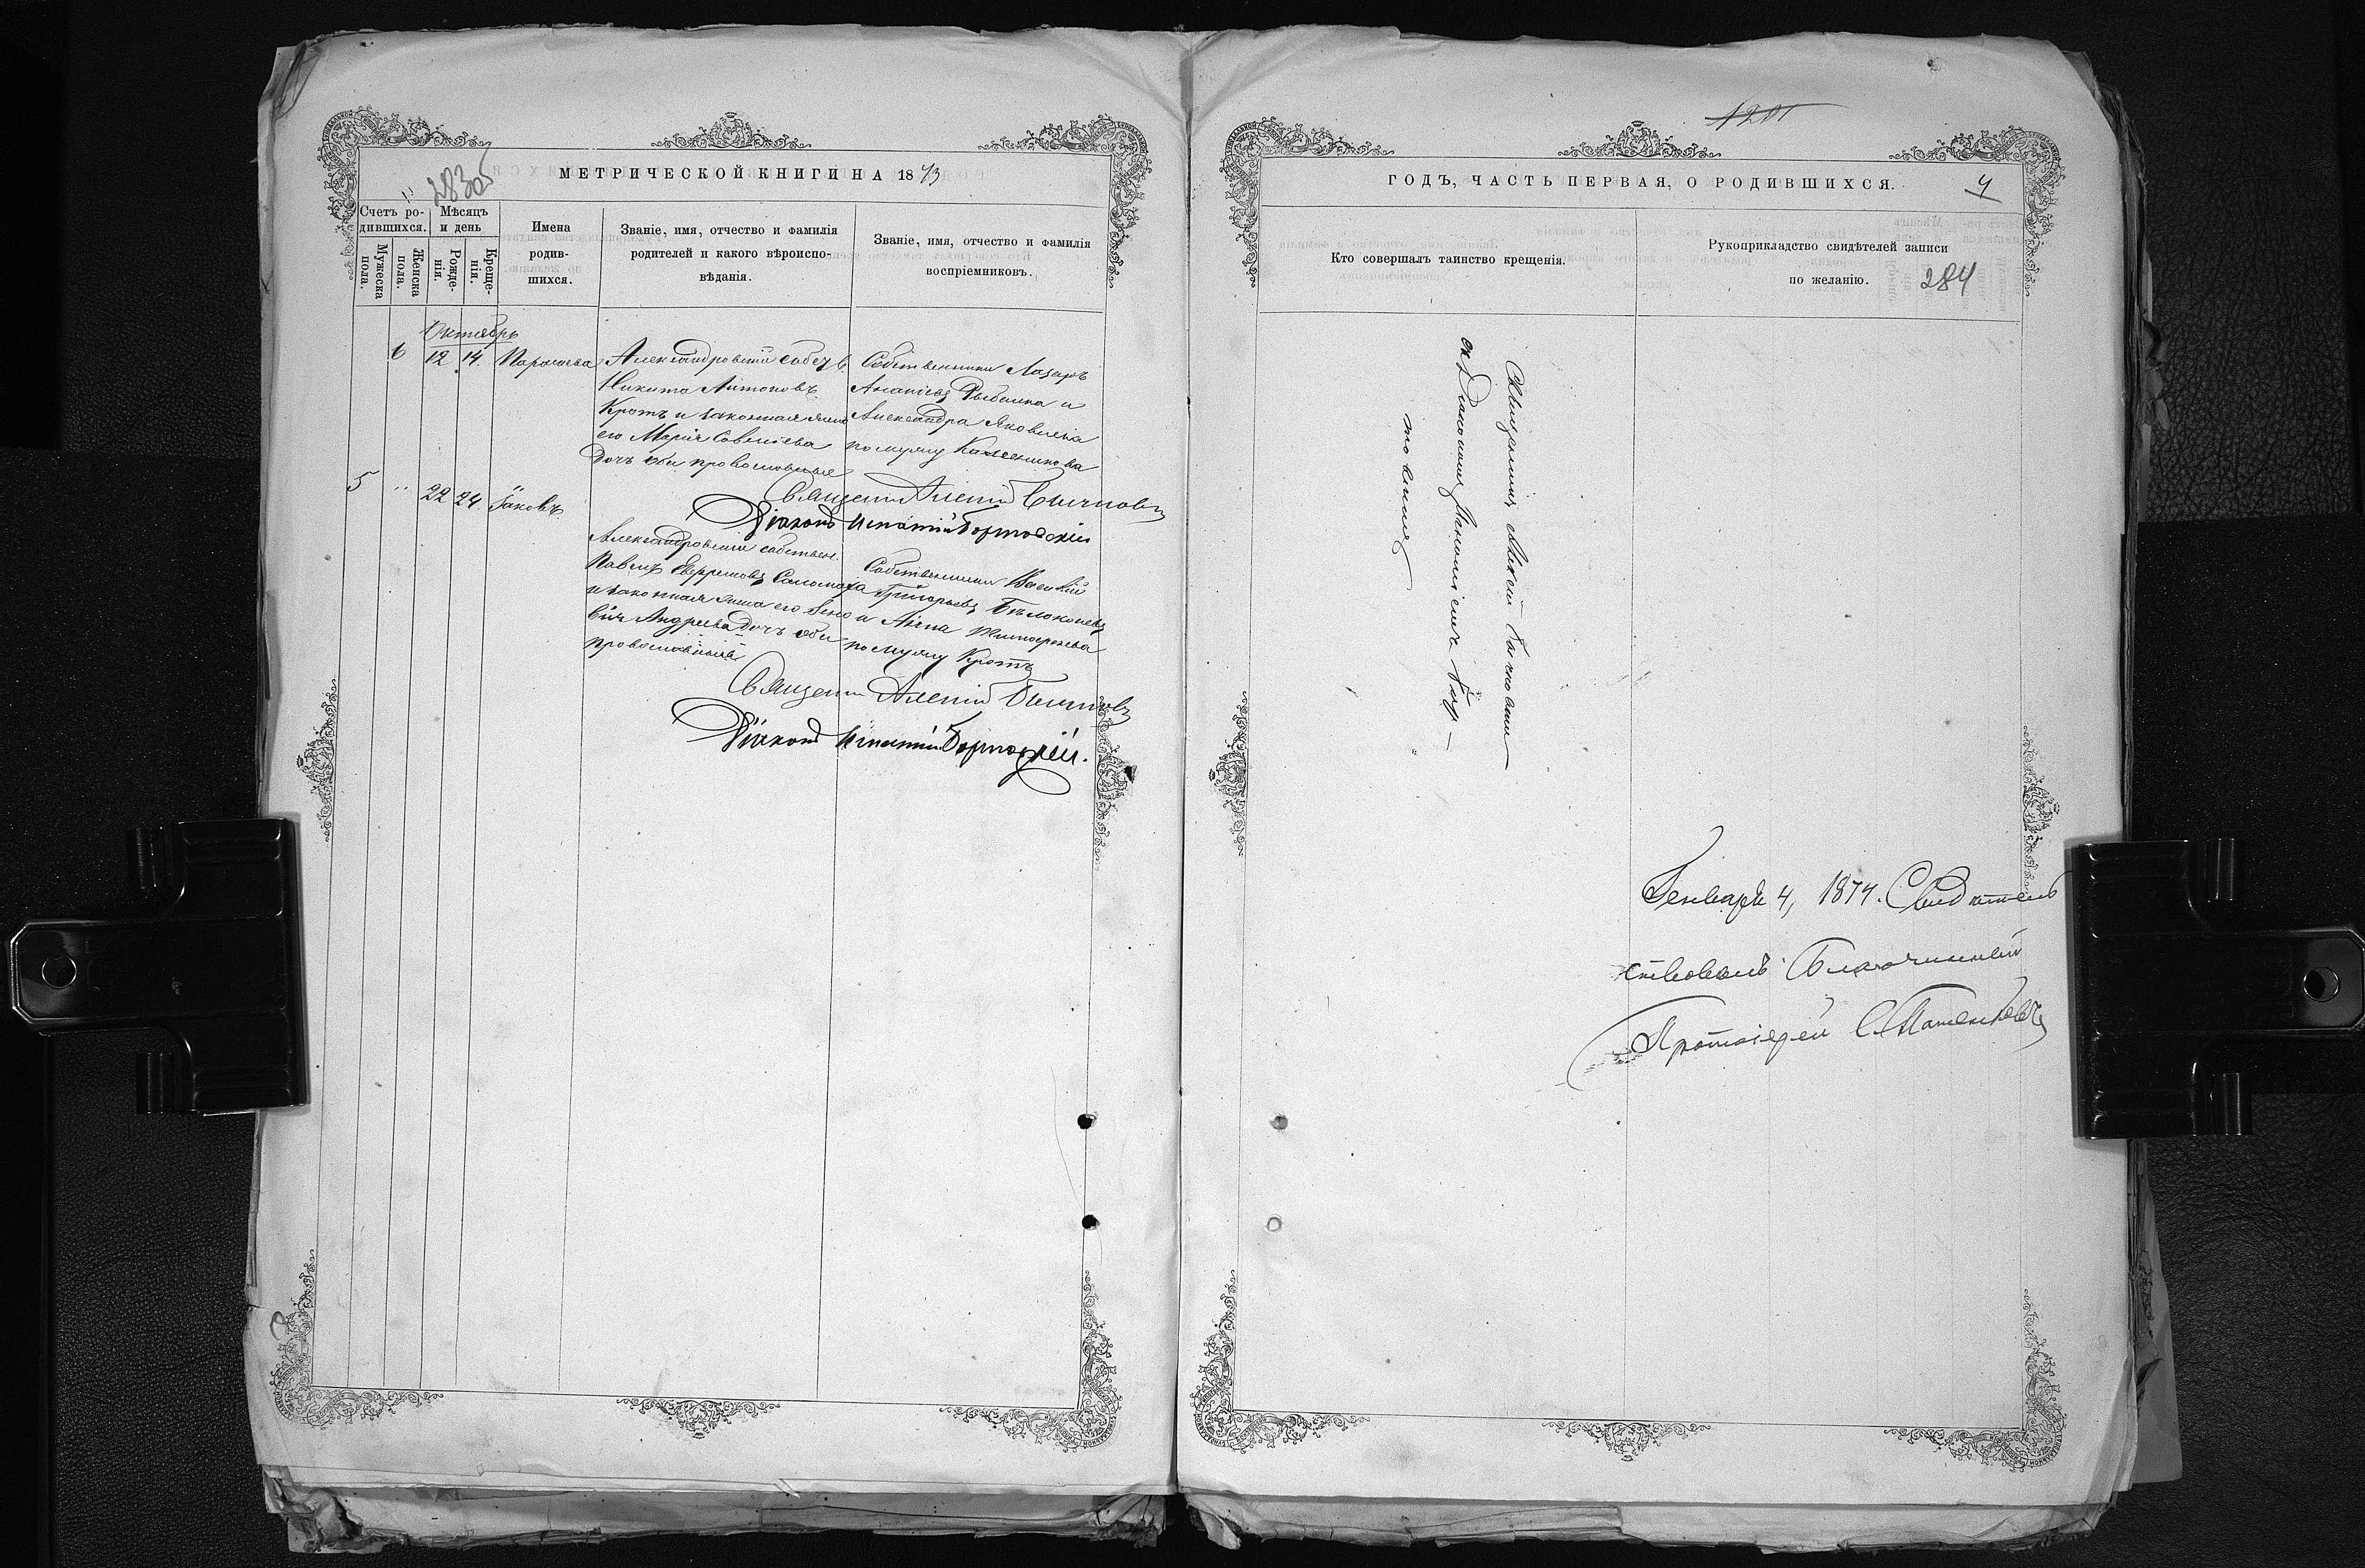 283об
МЕТРИЧЕСКОЙ КНИГИ НА 1873
Счетъ ро-
дившихся.
Мужеска
пола.
Женска
пола.
Мѣсяцъ
и день
Рожде-
нія.
Креще-
нія.
Имена
родив-
шихся.
Званіе, имя, отчество и фамилія
родителей и какого вѣроиспо-
вѣданія.
Званіе, имя, отчество и фамилія
воспріемниковъ.
Октябрь
6 12 14. Параскева
Александровскій собств.
Никита Антоновъ
Кротъ и законная жена
его Марія Савельева
дочь оба православные
Собственники Лазарь
Ананіевъ Рыбалка и
Александра Яковлева
по мужу
Священникъ Алексій
Діаконъ Игнатій
5 " 22 24. Іаковъ
Александровскій собствен.
Павелъ Ефремовъ Саломаха
и законная жена его
Андреева дочь оба
православные
Собственники Василій
Григорьевъ Бѣлоконевъ
и Анна
по мужу Кротъ
Священникъ Алексій
Діаконъ Игнатій
1201
ГОДЪ, ЧАСТЬ ПЕРВАЯ, О РОДИВШИХСЯ.
4
Кто совершалъ таинство крещенія.
Рукоприкладство свидѣтелей записи
по желанію.
284
Священникъ Алексій
съ Діакономъ Игнатіемъ
Генваря 4, 1874. Свидѣтель
ствовалъ Благочинный
Протоіерей С.